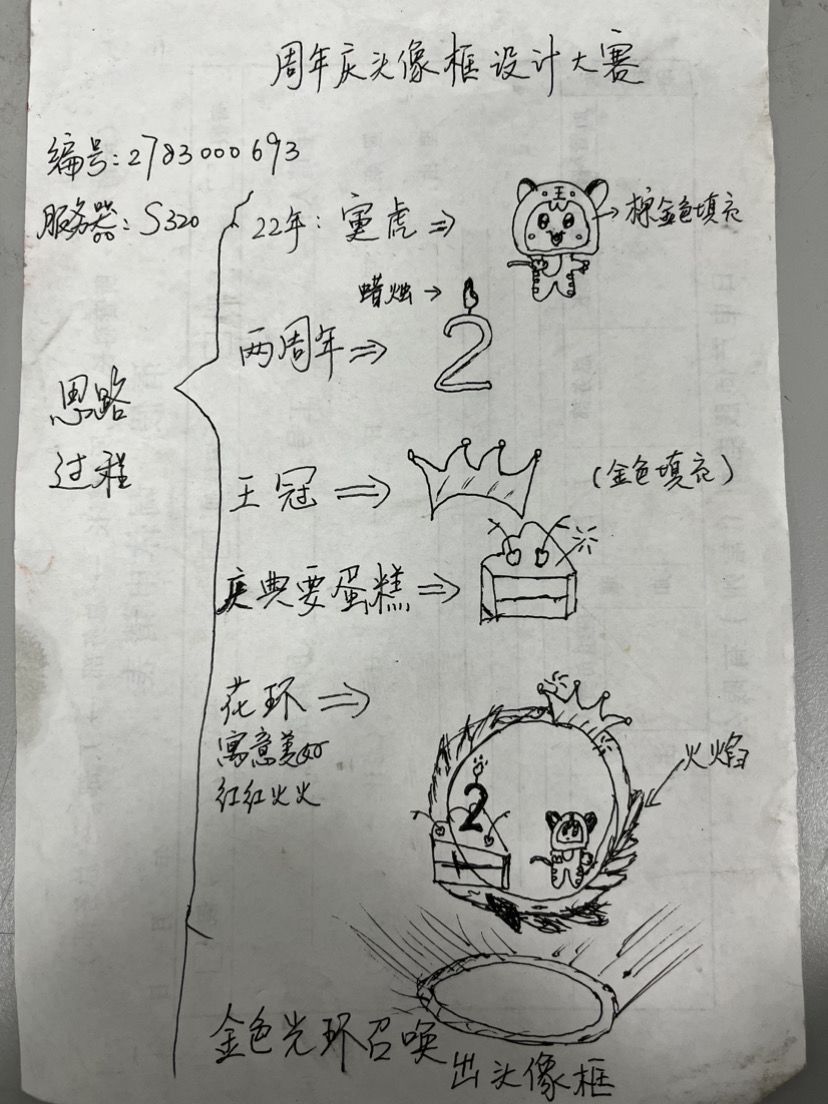 周年庆头像框设计大赛
编号:2783000693
服务器:S320
22年:寅虎⇒
→棕金色填充
蜡烛→
两周年⇒
2
思路
过程
王冠⇒
(金色填充)
庆典要蛋糕⇒
花环⇒
寓意美好
红红火火
火焰
2
金色光环召唤
出头像框